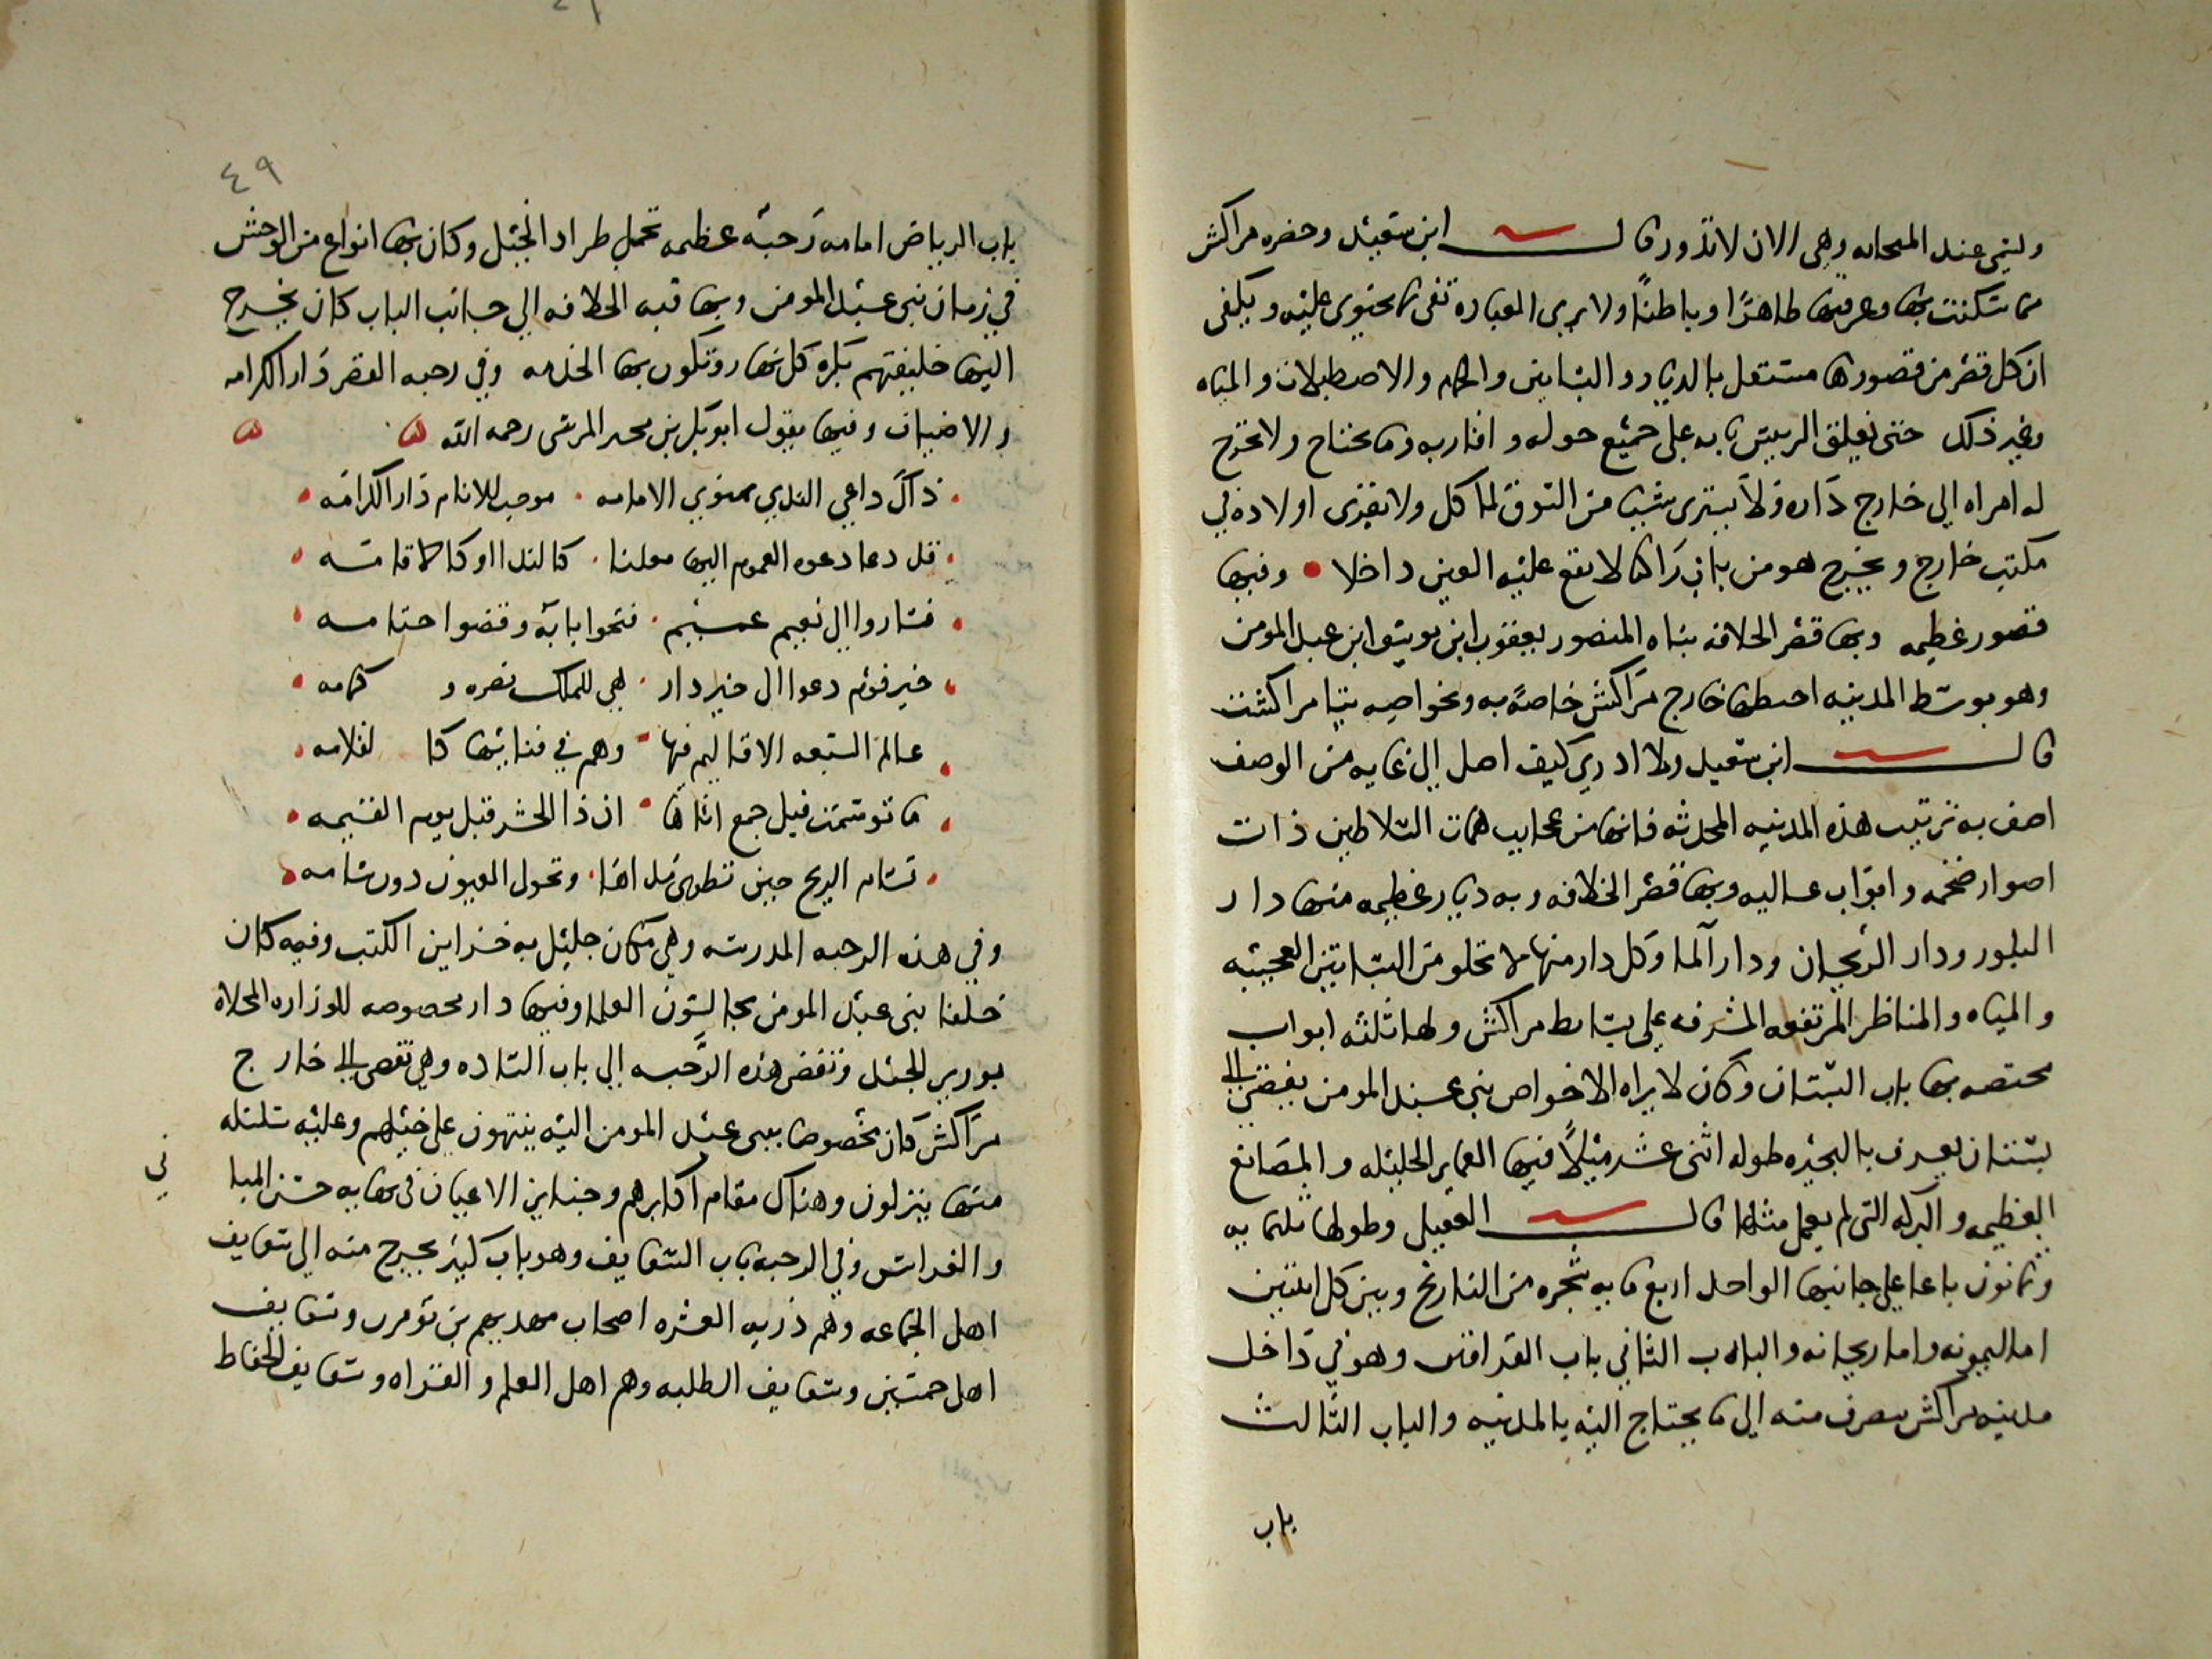 وليتى عند المنحانه وهي الان لا تدور قال ابن سعيد وحضره مراكش
مما سكنت بها وعرفتها ظاهرًا وباطنًا ولا يرى العباره تفى بما يحتوى عليه ويكفى
ان كل قصر من قصورها مستقل بالديار والبساتين والحمام والاصطبلات والمياه
وغير ذلك حتى يغلق الرييس بابه على جميع حوله واقاربه وما يحتاج ولا تخرج
له امراه الى خارج داره ولا يشترى شيئا من السوق لماكل ولا يقرى اولاده في
مكتب خارج ويخرج هو من بابه راكبا لا تقع عليه العين داخلا وفيها
قصور عظيمه وبها قصر الخلافه بناه المنصور يعقوب ابن يوسف ابن عبد المومن
وهو بوسط المدينه اختطها خارج مراكش خاصه به وبخواصه بتامراكشت
قال ابن سعيد ولا ادري كيف اصل الى غايه من الوصف
اصف به ترتيب هذه المدينه المحدثه فانها من عجايب همات السلاطين ذات
اصوار ضخمه وابواب عاليه وبها قصر الخلافه وبه ديار عظيمه منها دار
البلور ودار الريحان ودار الما وكل دار منها لا تخلو من البساتين العجيبه
والمياه والمناظر المرتفعه المشرفه على بسايط مراكش ولها ثلثه ابواب
مختصه بها باب البستان وكان لا يراه الا خواص بنى عبد المومن يفضى الى
بستان يعرف بالبحيره طوله اثنى عشر ميلًا فيها العماير الجليله والمصانع
العظيمه والبركه التى لم يعمل مثلها قال العقيلى وطولها ثلثمايه
وثمانون باعا على جانبها الواحد اربع مايه شجره من النارنج وبين كل اثنتين
اما ليمونه واما ريحانه والباب الثاني باب القراقين وهو في داخل
مدينه مراكش يتصرف منه الى ما يحتاج اليه بالمدينه والباب الثالث
باب
٤٩
باب الرياض امامه رحبه عظيمه تحمل طراد الخيل وكان بها انواع من الوحش
في زمان بنى عبد المومن وبها قبه الخلافه الي جانب الباب كان يخرج
اليها خليفتهم بكره كل نهار وتكون بها الخدمه وفي رحبه القصر دار الكرامه
والاضياف وفيها يقول ابو بكر بن محمد المرسى رحمه الله
ذاك داعي الندي بمنوي الامامه موجب للانام دار الكرامه
قد دعا دعوه العموم اليها معلنا كالندا او كالاقامه
فساروا الى نعيم عميم فتحوا بابه وفضوا ختامه
خير قوم دعوا الى خير دار هي للملك نضره و كمامه
عالم السبعه الاقاليم فيها وهم في فنائها كا لقلامه
ما توسمت قبل جمع اتاها ان ذا الحشر قبل يوم القيمه
تسام الريح حين تطوى مداها وتحول العيون دون شامه
وفي هذه الرحبه المدرسه وهي مكان جليل به خزاين الكتب وفيه كان
خلفا بنى عبد المومن يجالسون العلما وفيها دار مخصوصه للوزاره المحلاه
بوزير الجند وتفضى هذه الرحبه الى باب الساده وهي تفضى الى خارج
مراكش كان مخصوصا ببنى عبد المومن اليه ينتهون على خيلهم وعليه سلسله
منها ينزلون وهناك مقام اكابرهم وجناين الاعيان فى نهايه حسن المبا
نى
والغراس وفي الرحبه باب السقايف وهو باب كبير يخرج منه الى سقايف
اهل الجماعه وهم ذريه العشره اصحاب مهديهم بن تومرت وسقايف
اهل خمسين وسقايف الطلبه وهم اهل العلم والقراه وسقايف الحفاظ